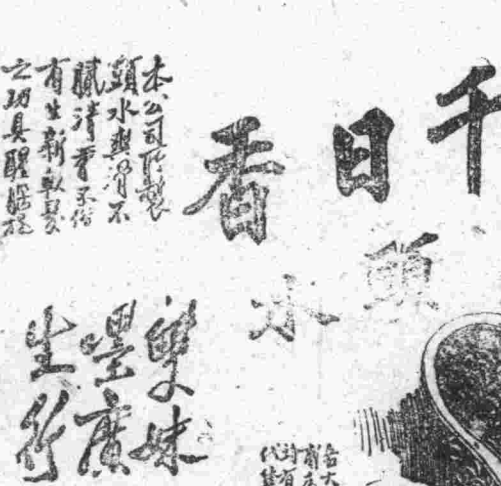 千日香
頭水
本公司所製
頭水與滑不
膩清香不俗
有生新飲髮
之功具醒腦提
雙妹
嚜廣
生行
各大